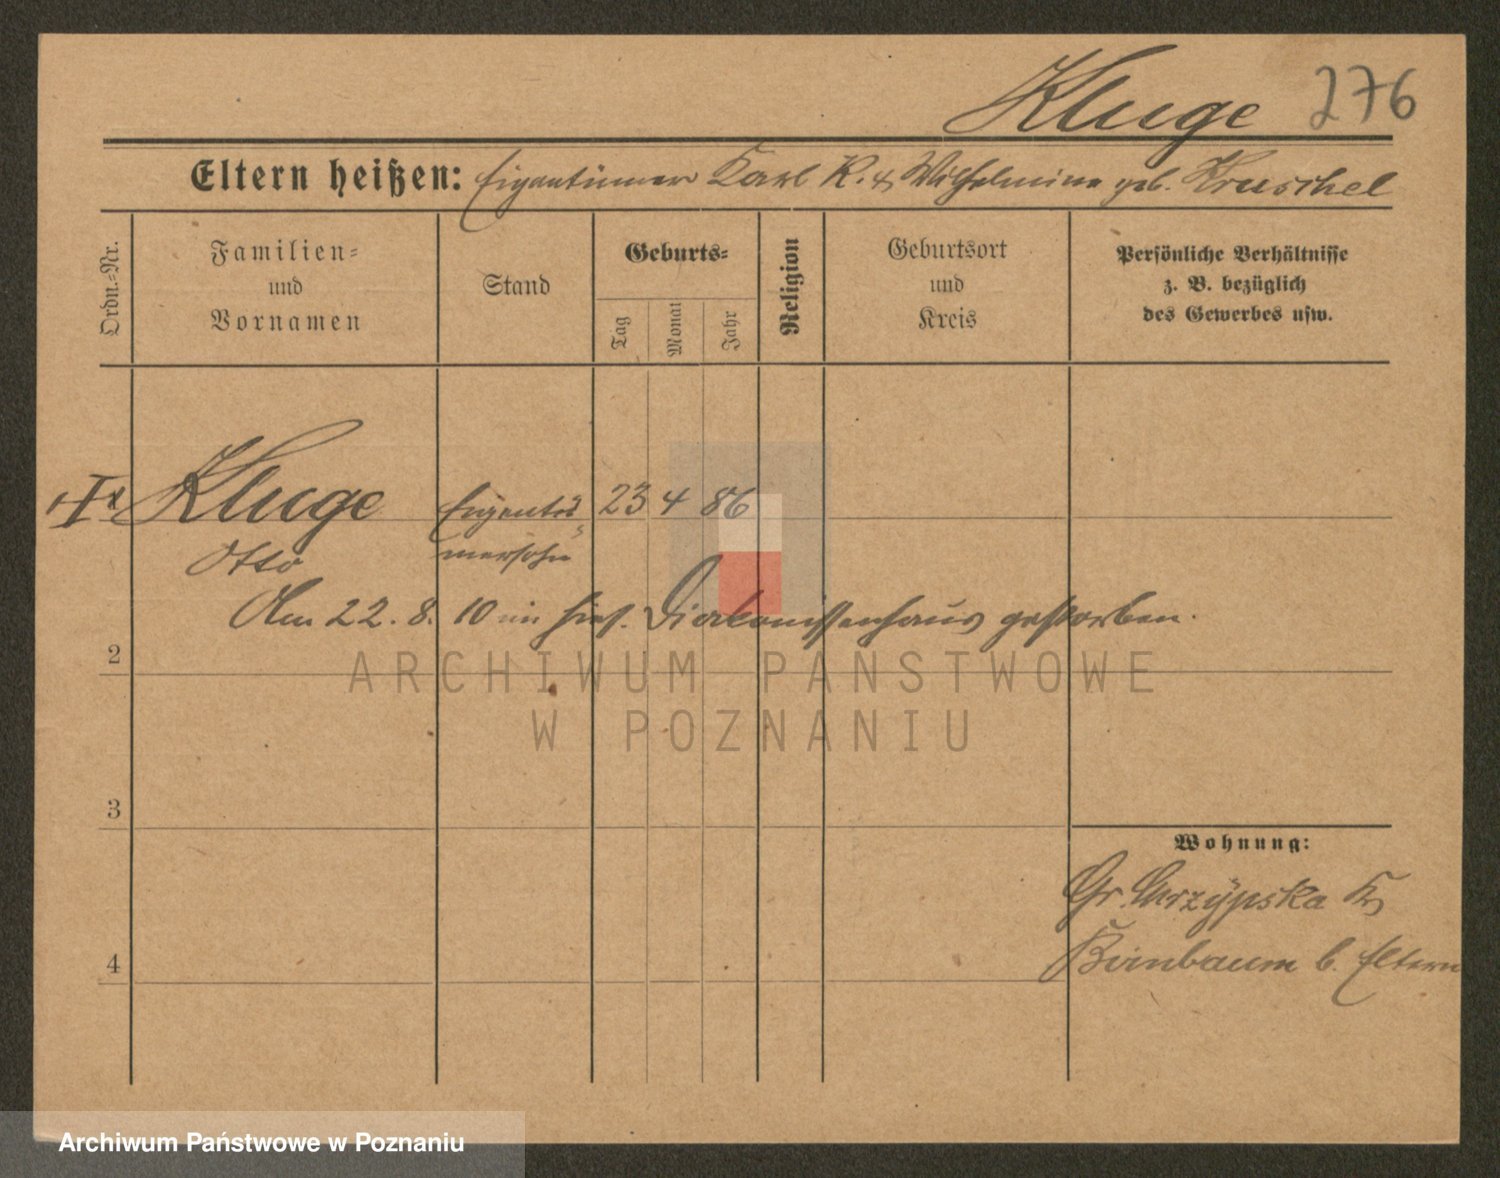 Kluge 276
Eltern heißen: Eigentümer Karl K. & Wilhelmine geb. Kruschel
Ordn.-Nr.
Familien-
und
Vornamen
Stand
Geburts-
Tag
Monat
Jahr
Religion
Geburtsort
und
Kreis
Persönliche Verhältnisse
z. B. bezüglich
des Gewerbes usw.
Kluge Eigentü- 23 4 86
Otto mersohn
Am 22. 8. 10 im hies. Diakonissenhaus gestorben.
2
ARCHIWUM PAŃSTWOWE
W POZNANIU
3
Wohnung:
Gr. Chrzypsko K
4 Birnbaum b. Eltern
Archiwum Państwowe w Poznaniu